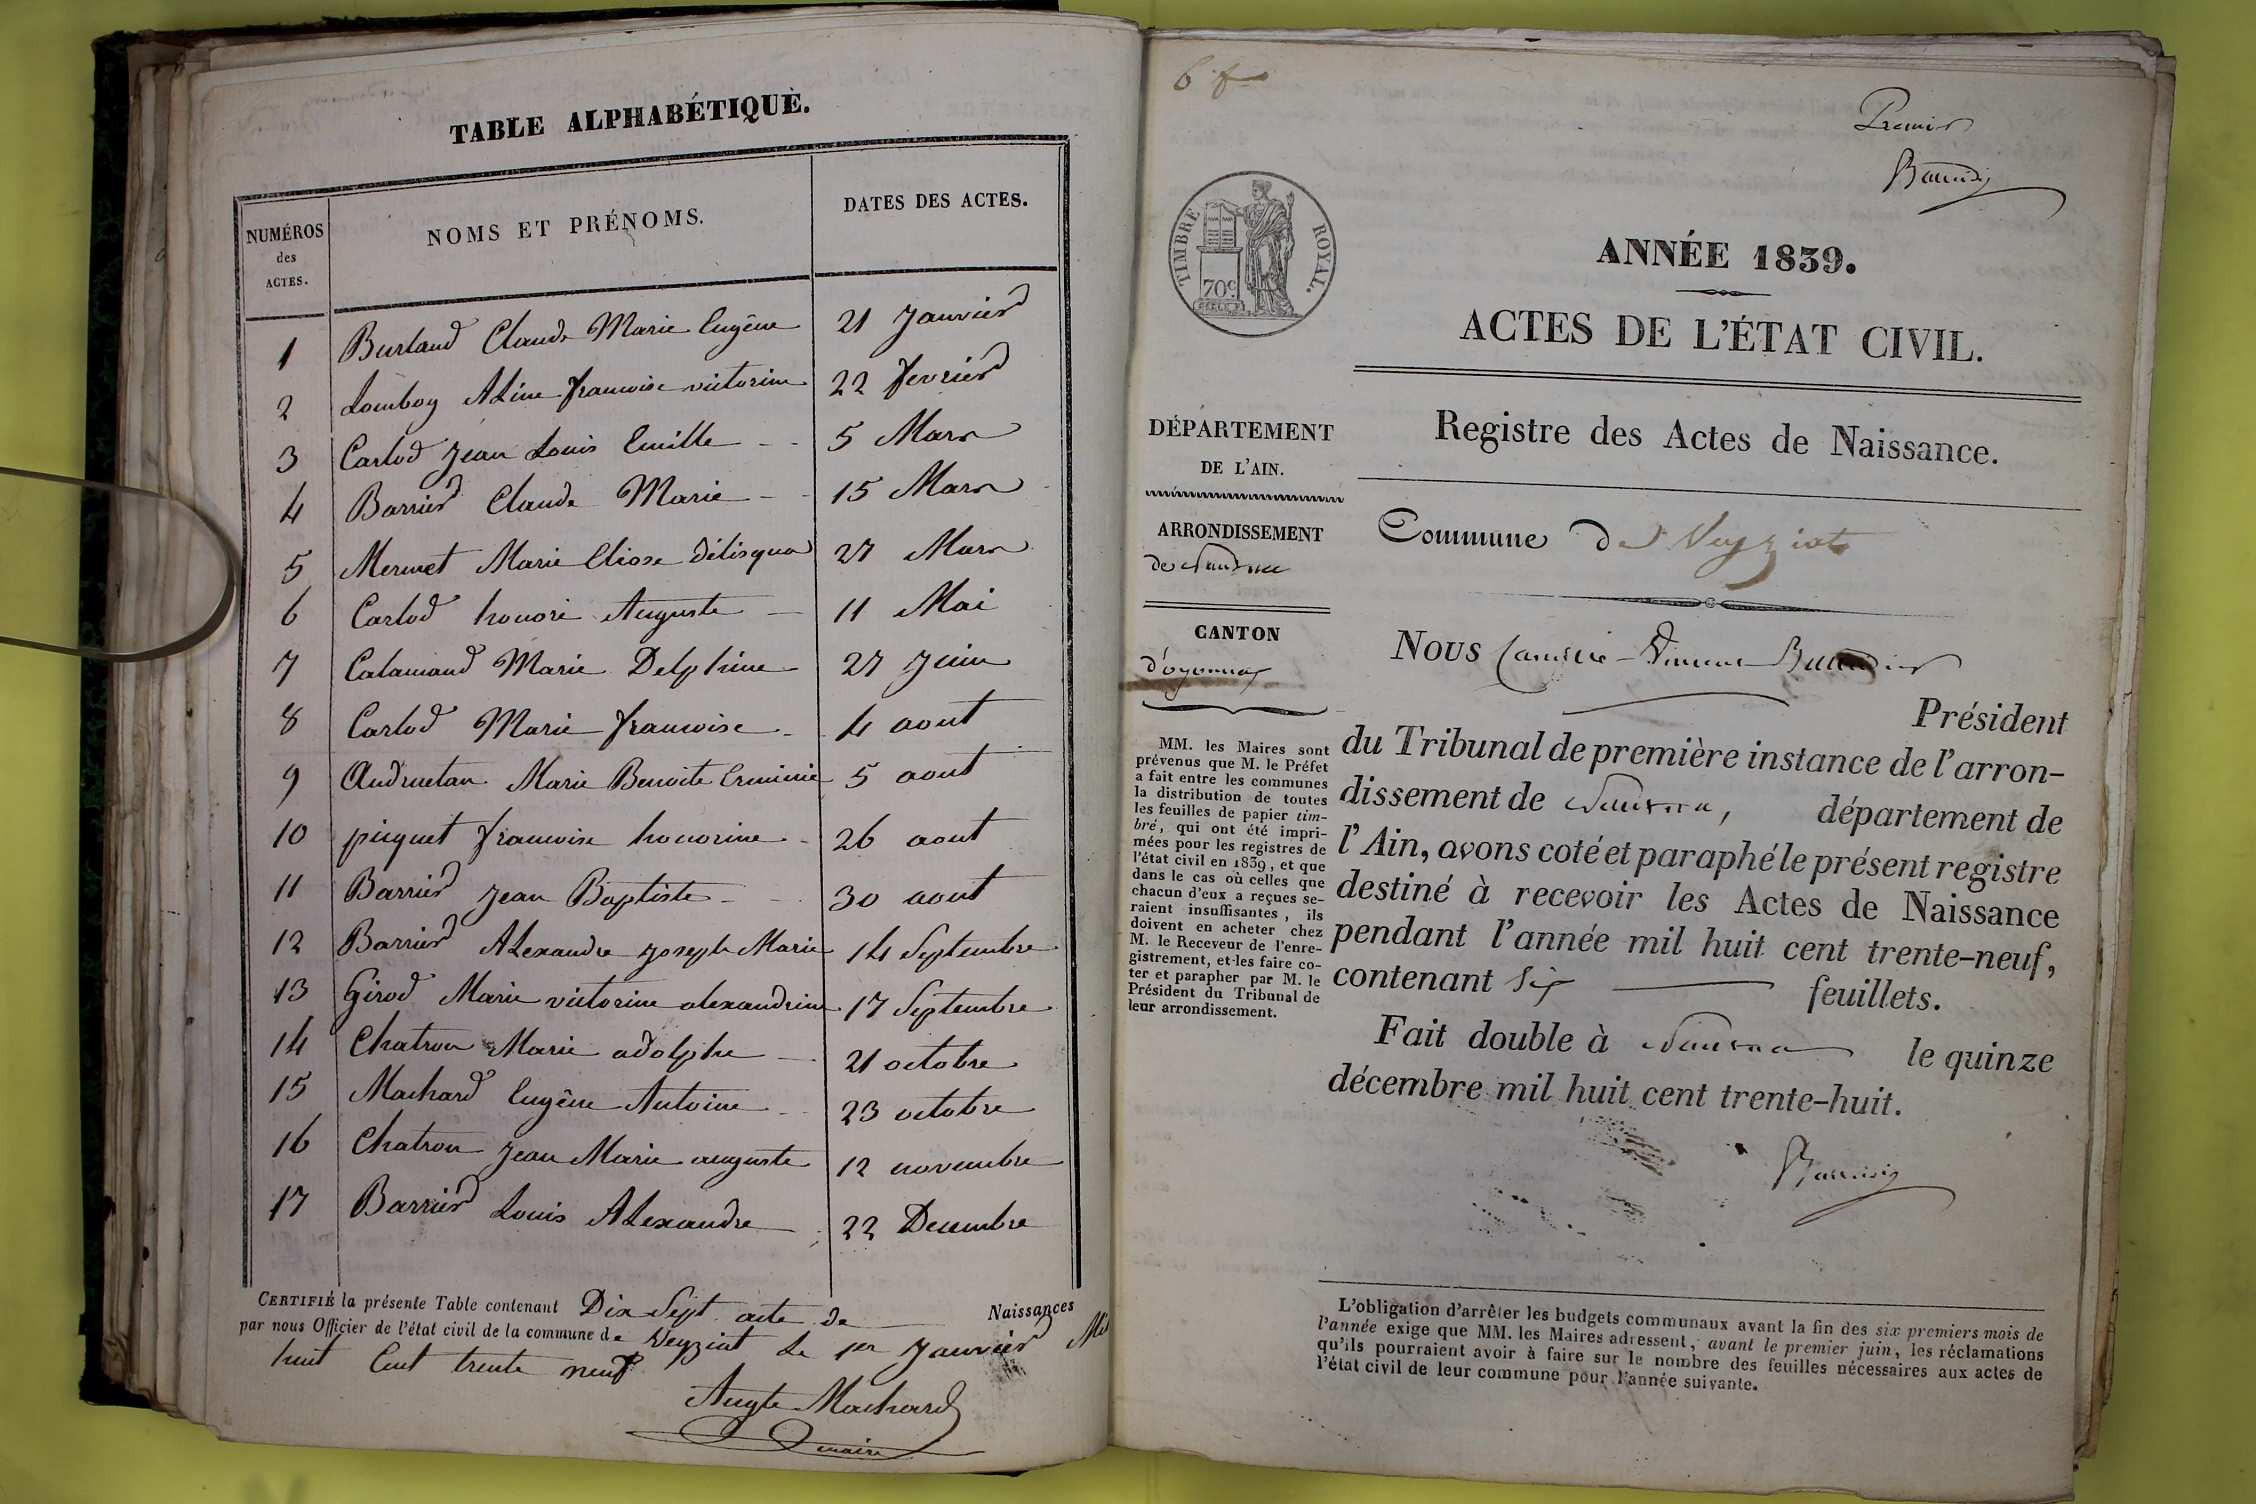 TABLE ALPHABÉTIQUE.
NUMÉROS
des
ACTES.
NOMS ET PRÉNOMS.
DATES DES ACTES.
1 Burlaud Claude Marie Eugêne 21 Janvier
2 Lomboy ALine francoise victorine 22 fevrier
3 Carlod Jean Louis Emille 5 Mars
4 Barrier Claude Marie 15 Mars
5 Mermet Marie Elisse 27 Mars
6 Carlod honoré Auguste 11 Mai
7 Calamand Marie Delphine 27 Juin
8 Carlod Marie francoise 4 aout
9 Marie Benoite Erminie 5 aout
10 piquet francoise honorine 26 aout
11 Barrier Jean Baptiste 30 aout
12 Barrier ALexandre joseph Marie 14 Septembre
13 Girod Marie victorine alexandrine 17 Septembre
14 Chatron Marie adolphe 21 octobre
15 Machard Eugêne Antoine 23 octobre
16 Chatron Jean Marie auguste 12 novembre
17 Barrier Louis ALexandre 22 Decembre
CERTIFIÉ la présente Table contenant Dix Sept acte de Naissances
par nous Officier de l'état civil de la commune de Veyziat Le 1er Janvier Mil
huit Cent trente neuf
Augte Machard
maire
6 f
Premier
TIMBRE ROYAL.
70c
ANNÉE 1839.
ACTES DE L'ÉTAT CIVIL.
Registre des Actes de Naissance.
DÉPARTEMENT
DE L'AIN.
ARRONDISSEMENT
de Nantua
CANTON
d'oyonnax
MM. les Maires sont
prévenus que M. le Préfet
a fait entre les communes
la distribution de toutes
les feuilles de papier tim-
bré, qui ont été impri-
mées pour les registres de
l'état civil en 1839, et que
dans le cas où celles que
chacun d'eux a reçues se-
raient insuffisantes, ils
doivent en acheter chez
M. le Receveur de l'enre-
gistrement, et les faire co-
ter et parapher par M. le
Président du Tribunal de
leur arrondissement.
Commune de Veyziat
Nous
Président
du Tribunal de première instance de l'arron-
dissement de Nantua, département de
l'Ain, avons coté et paraphé le présent registre
destiné à recevoir les Actes de Naissance
pendant l'année mil huit cent trente-neuf,
contenant six feuillets.
Fait double à Nantua le quinze
décembre mil huit cent trente-huit.
L'obligation d'arrêter les budgets communaux avant la fin des six premiers mois de
l'année exige que MM. les Maires adressent, avant le premier juin, les réclamations
qu'ils pourraient avoir à faire sur le nombre des feuilles nécessaires aux actes de
l'état civil de leur commune pour l'année suivante.